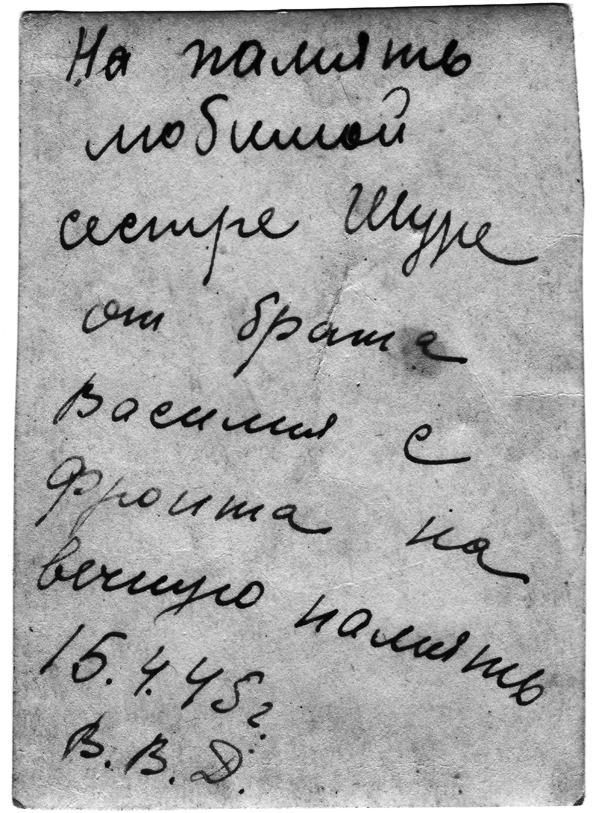 На память
любимой
сестре Шуре
от брата
Василия с
Фронта на
вечную память
15.4.45г.
В.В.Д.